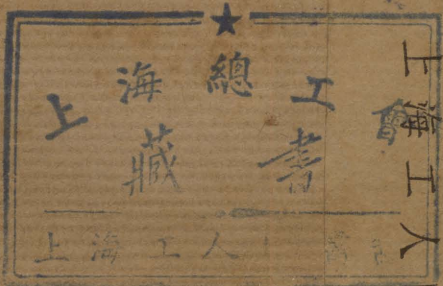 上海總工會
藏書
上海工人
上海工人